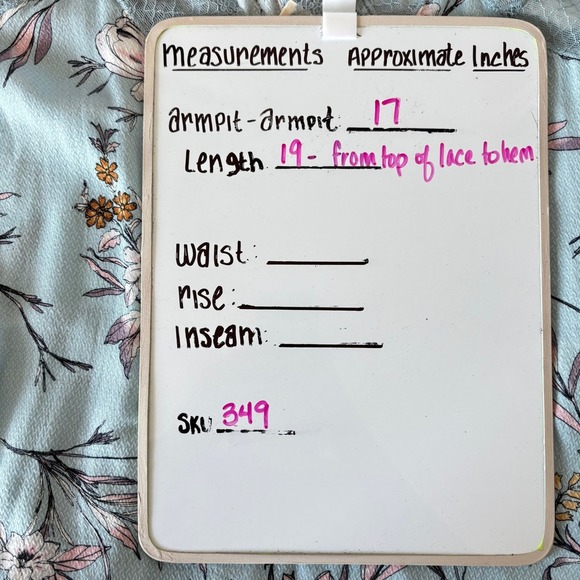 measurements Approximate Inches
armpit-armpit 17
Length 19 - from top of lace to hem
waist:
rise:
inseam:
SKU 349